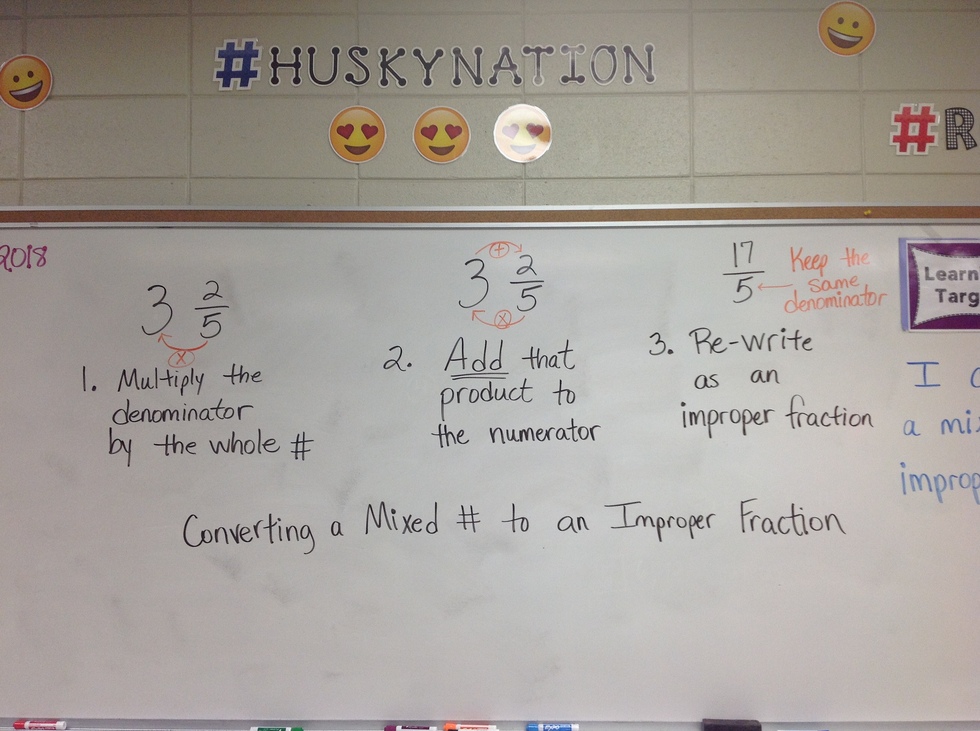 #HUSKYNATION
#R
2018
3 2/5
×
1. Multiply the
denominator
by the whole #
+
3 2/5
×
2. Add that
product to
the numerator
17/5 ← Keep the
same
denominator
3. Re-write
as an
improper fraction
Learn
Targ
I
a mi
improp
Converting a Mixed # to an Improper Fraction